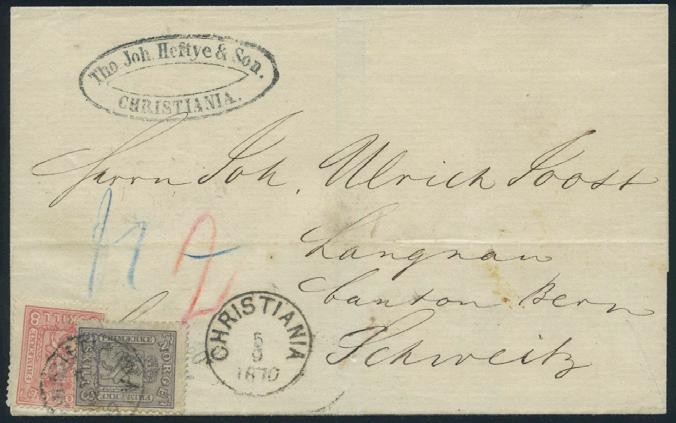 Tho. Joh. Heftye & Son.
CHRISTIANIA.
Herrn Joh. Ulrich Joost
Langnau
Canton Bern
Schweitz
2
CHRISTIANIA
5
1870
8 SKILL
FRIMÆRKE
NORGE
FRIMÆRKE